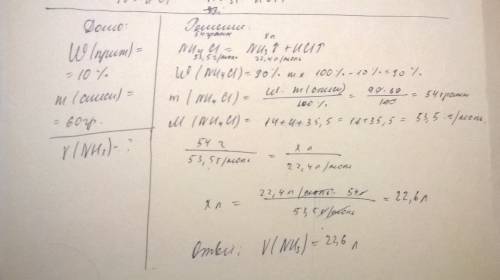 Дано:
W(прим)=
= 10 %
m(смеси)=
= 60 гр.
V(NH3)-?
Решение:
54 грамм x л
NH4Cl = NH3↑ + HCl↑
53,5 г/моль 22,4 л/моль
W(NH4Cl) = 90% 100% - 10% = 90%
m(NH4Cl) = W · m(смеси) / 100% = 90·60 / 100 = 54 грамм
M(NH4Cl) = 14+4+35,5 = 18+35,5 = 53,5 г/моль
54 г / 53,5 г/моль = x л / 22,4 л/моль
x л = 22,4 л/моль · 54 г / 53,5 г/моль = 22,6 л
Ответ: V(NH3) = 22,6 л